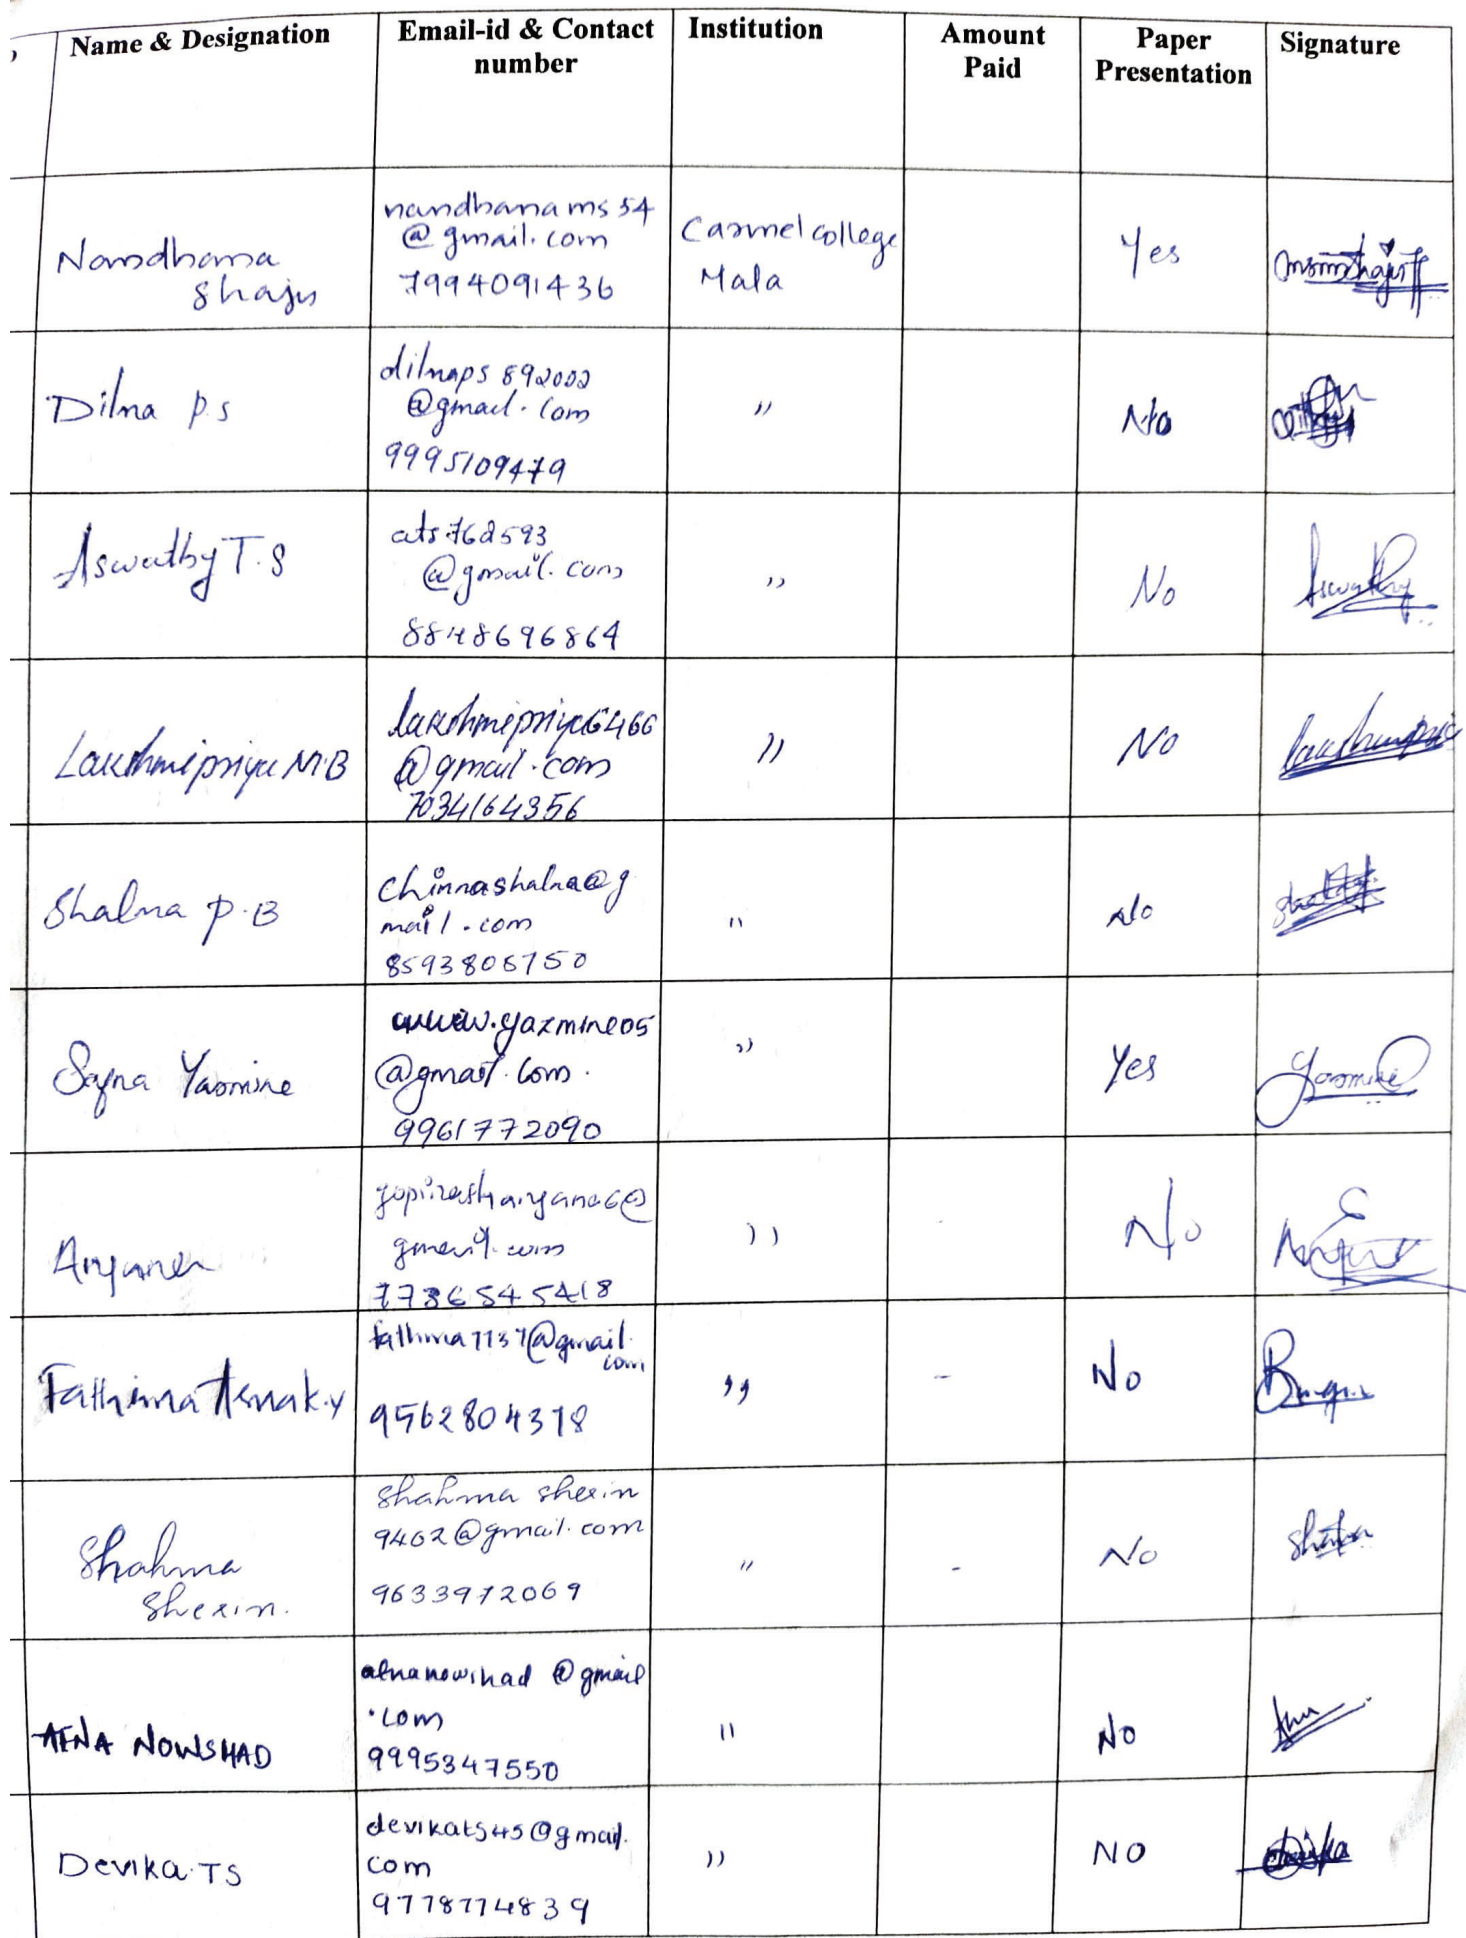 Name & Designation
Email-id & Contact
number
Institution
Amount
Paid
Paper
Presentation
Signature
Nandhana
Shaju
nandhanams54
@gmail.com
7994091436
Carmel college
Mala
Yes
Dilna P.S
dilnaps892002
@gmail.com
9995109479
"
No
Aswathy T.S
ats762593
@gmail.com
8848696864
"
No
Aswathy
Lakshmipriya M.B
lakshmipriya6466
@gmail.com
7034164356
"
No
Shalna P.B
chinnashalna@g
mail.com
8593806750
"
No
Sajna Yasmine
www.yazmine05
@gmail.com.
9961772090
"
Yes
Yasmine
Aryana
gmail.com
7736545418
"
No
Fathima Asna K.Y
fathima7137@gmail.
com
9562804378
"
-
No
Shahma
Sherin.
Shahma sherin
9402@gmail.com
9633972069
"
-
No
AFNA NOWSHAD
afnanowshad@gmail
.com
9995347550
"
No
Devika.TS
devikats45@gmail.
com
9778774839
"
NO